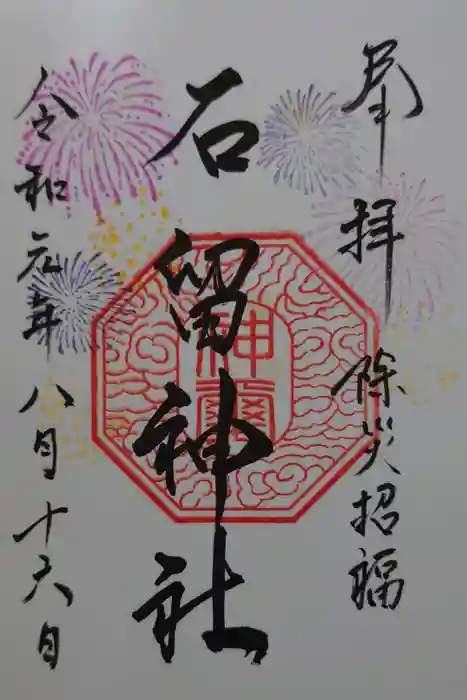 奉拝 除災招福
石留神社
令和元年八月十六日